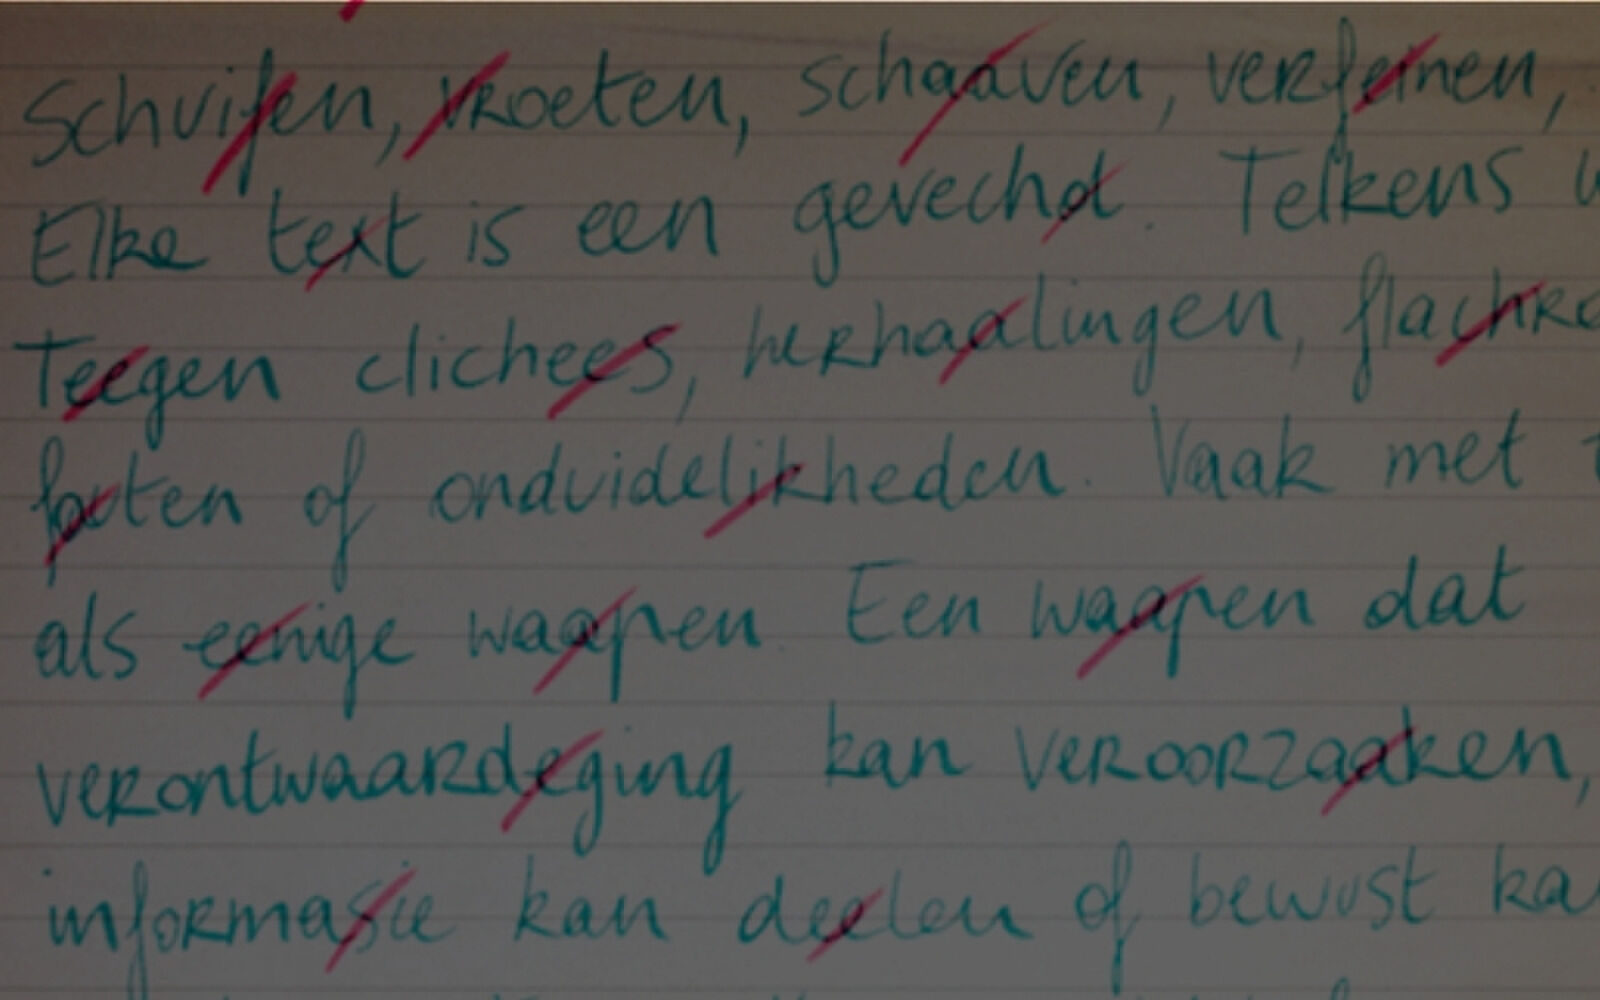 Schuifen, vroeten, schaaven, verfeinen,
Elke text is een gevechd. Telkens
Teegen clichees, herhaalingen,
fouten of onduidelikheden. Vaak met
als eenige waapen. Een waapen dat
verontwaardeging kan veroorzaaken,
informasie kan deelen of bewust